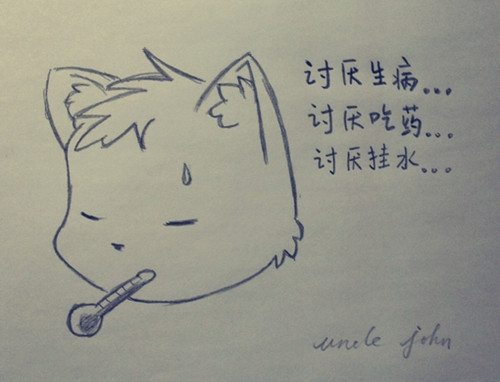 讨厌生病...
讨厌吃药...
讨厌挂水...
uncle john